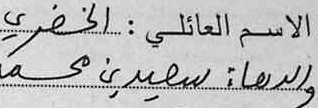 الاسم العائلي : الخضري
والدهاة سعيد بن محمد